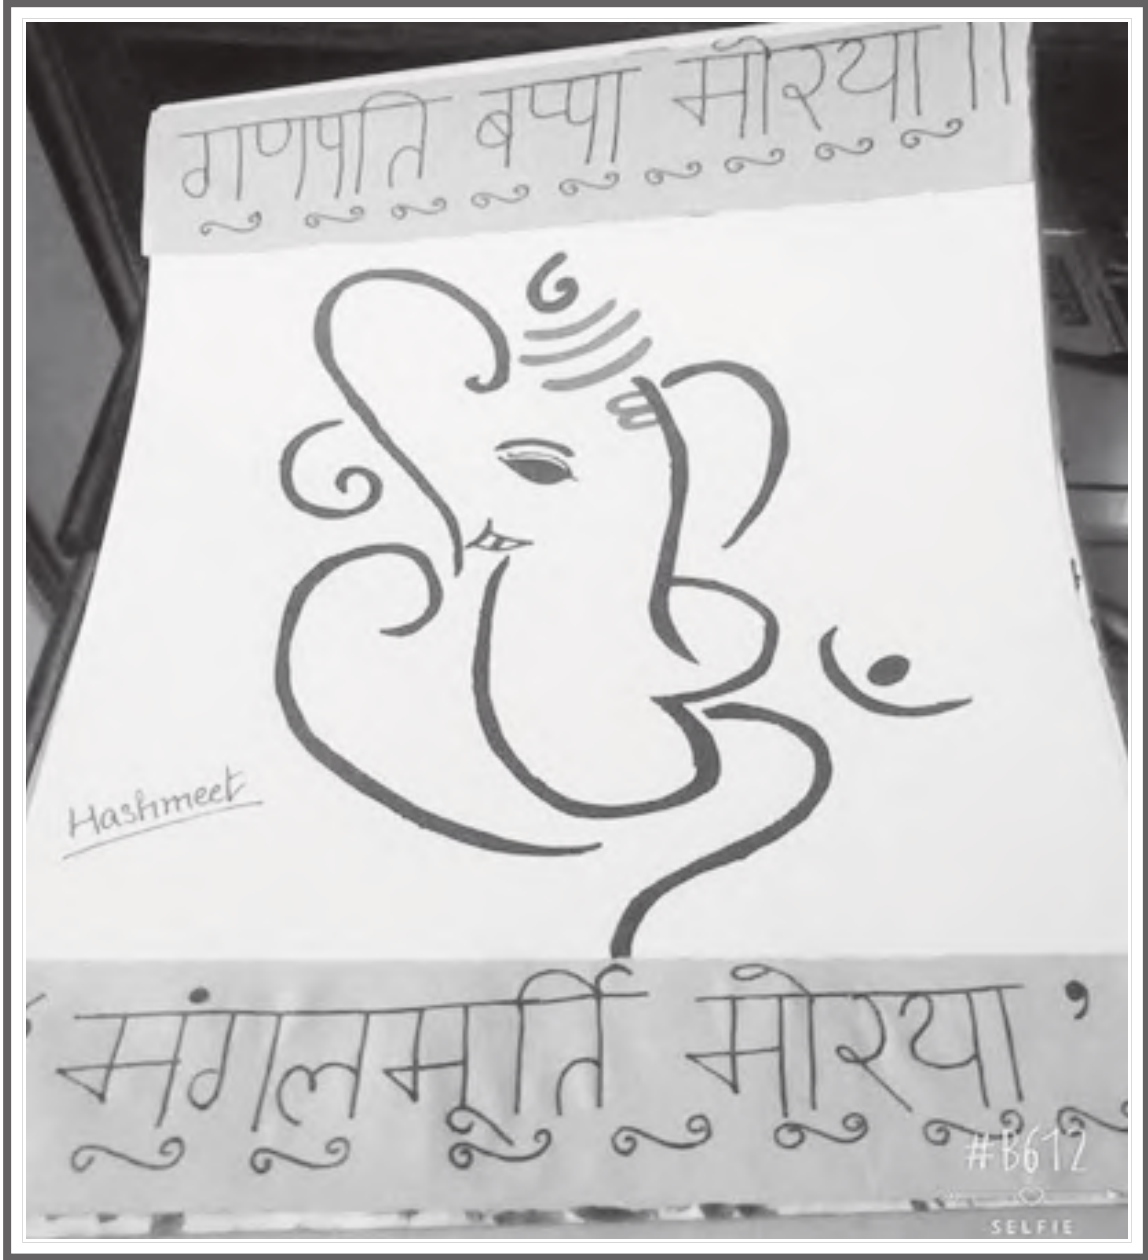 गणपति बप्पा मोरया ||
Hashmeet
मंगलमूर्ति मोरया '
#B612
SELFIE